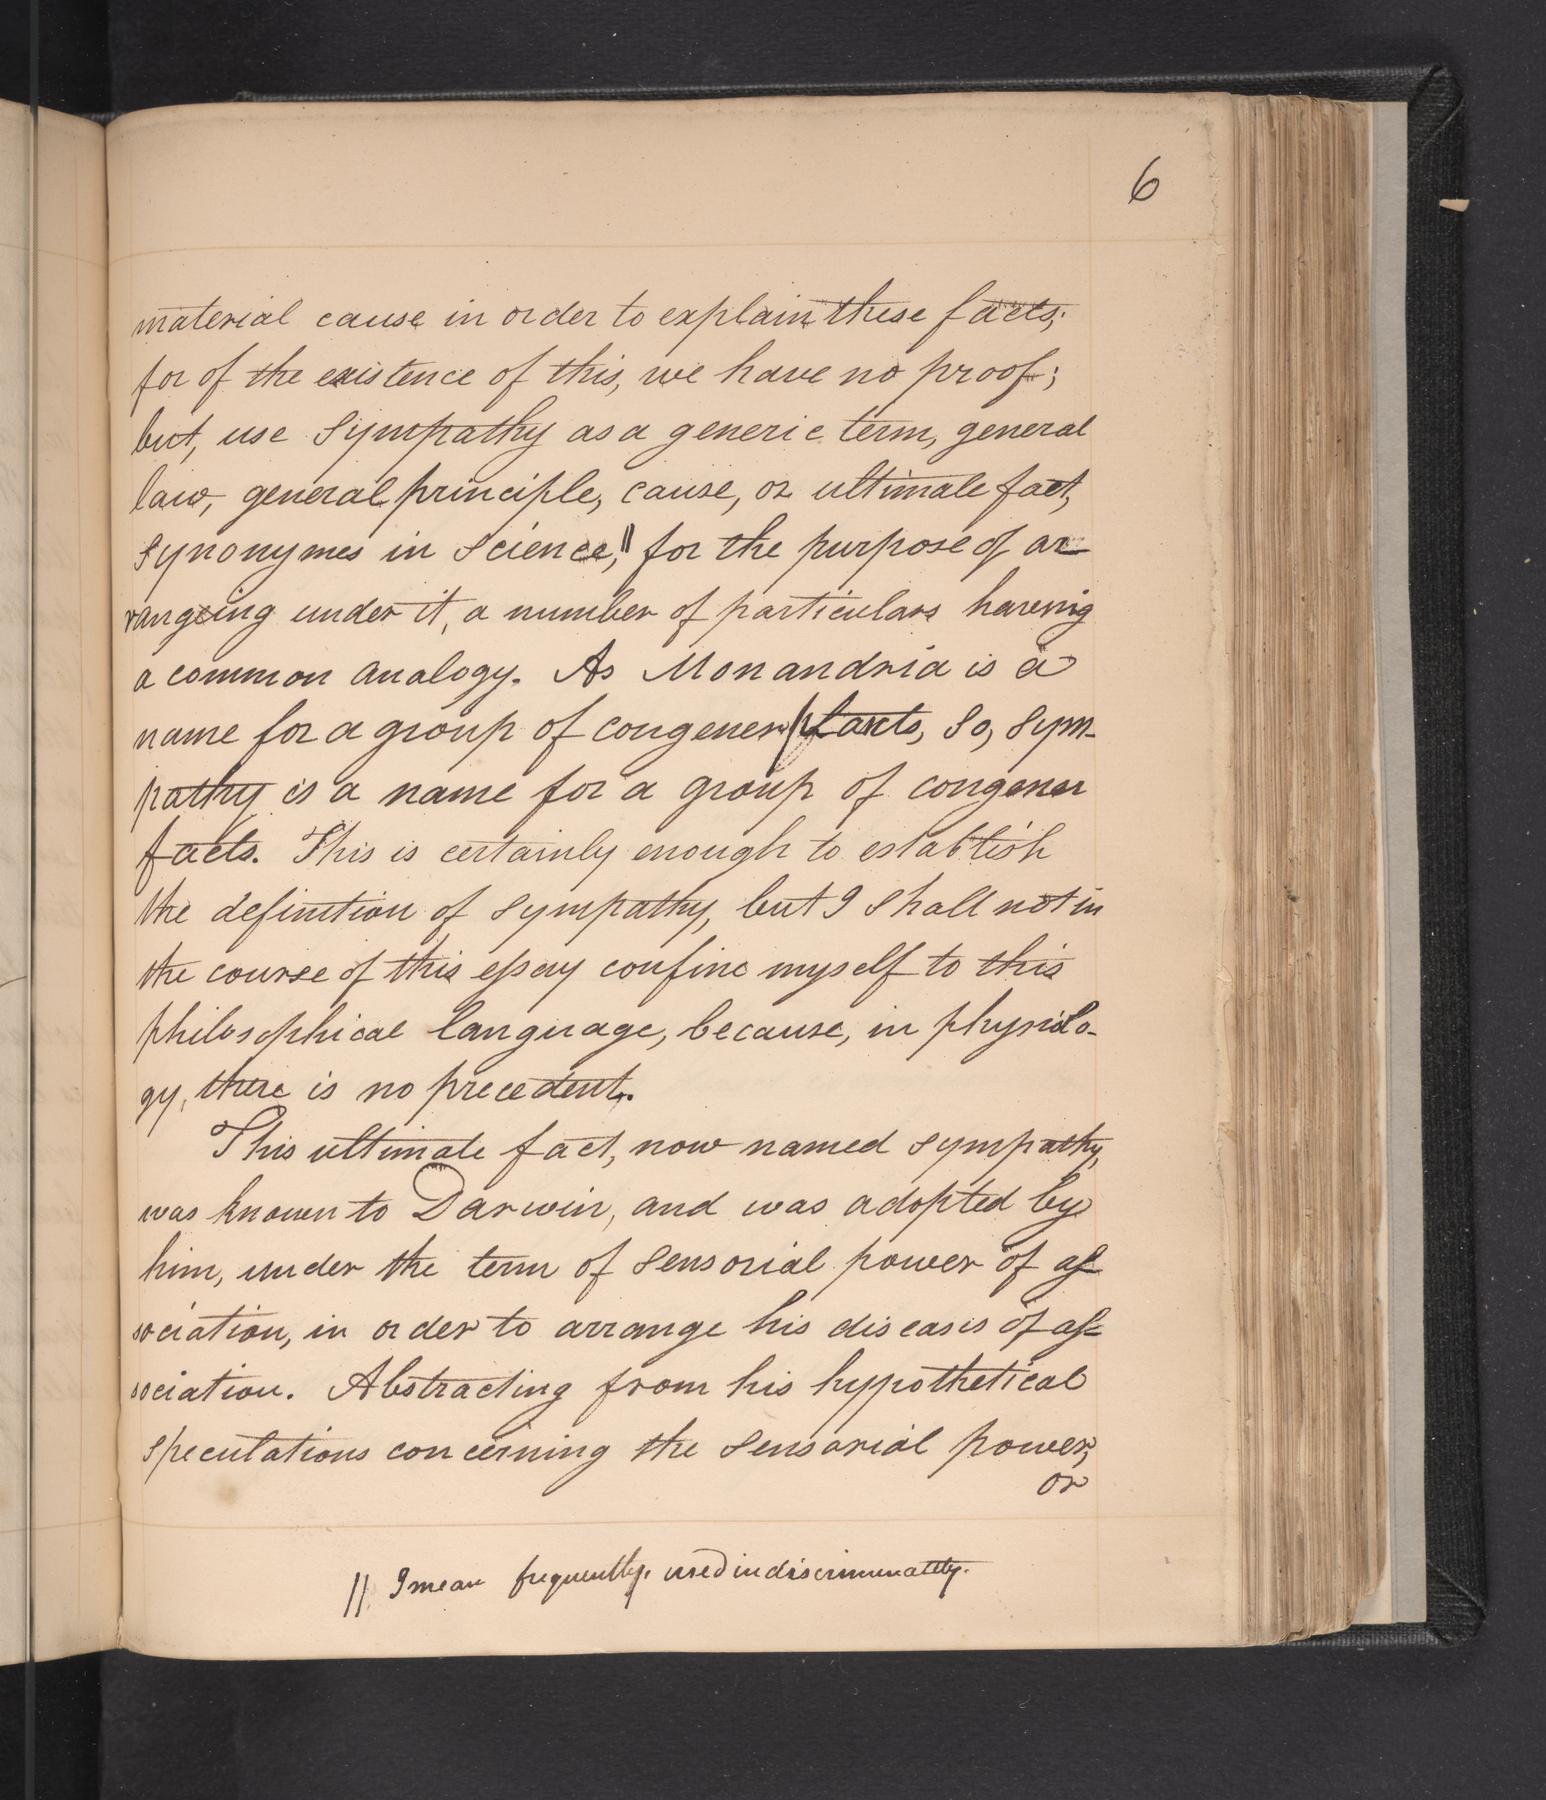 6
material cause in order to explain these facts;
for of the existence of this, we have no proof;
but, use Sympathy as a generic term, general
law, general principle, cause, or ultimate fact,
synonymes in Science,|| for the purpose of ar-
rangeing under it, a number of particulars having
a common analogy. As Monandria is a
name for a group of congener plants, so, Sym-
pathy is a name for a group of congener
facts. This is certainly enough to establish
the definition of sympathy, but I shall not in
the course of this essay confine myself to this
philosophical language, because, in physiolo-
gy, there is no precedent.
This ultimate fact, now named sympathy,
was known to Darwin, and was adopted by
him, under the term of sensorial power of as-
sociation, in order to arrange his diseases of as-
sociation. Abstracting from his hypothetical
speculations concerning the sensorial power,
or
|| I mean frequently, used indiscriminately.